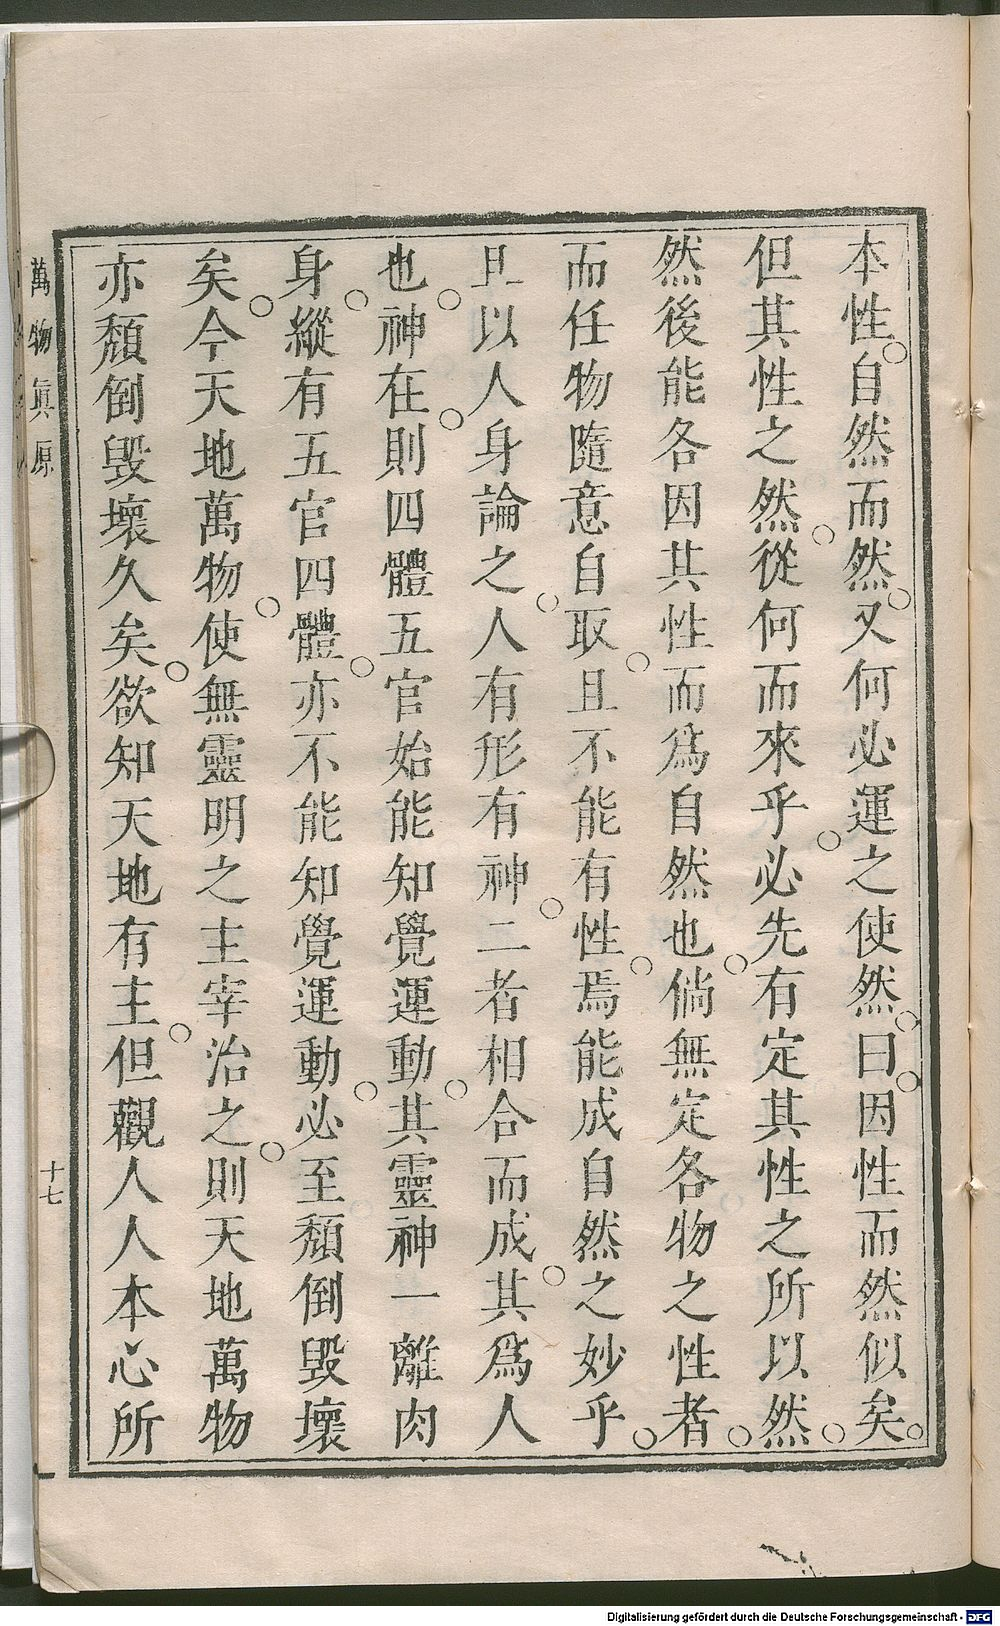 本性○自然而然○又何必運之使然○曰○因性而然似矣○
但其性之然○從何而來乎○必先有定其性之所以然○
然後能各因其性而爲自然也○倘無定各物之性者○
而任物隨意自取○且不能有性○焉能成自然之妙乎○
且以人身論之○人有形有神○二者相合而成○其爲人
也○神在○則四體五官始能知覺運動○其靈神一離肉
身○縱有五官四體○亦不能知覺運動○必至頹倒毀壞
矣○今天地萬物○使無靈明之主宰治之○則天地萬物
亦頹倒毀壞久矣○欲知天地有主○但觀人人本心所
萬物真原
十七
Digitalisierung gefördert durch die Deutsche Forschungsgemeinschaft - DFG